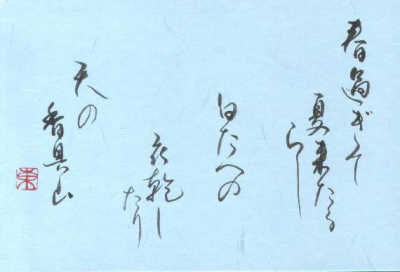 春過ぎて
夏来たる
らし
白たへの
衣乾し
たり
天の
香具山